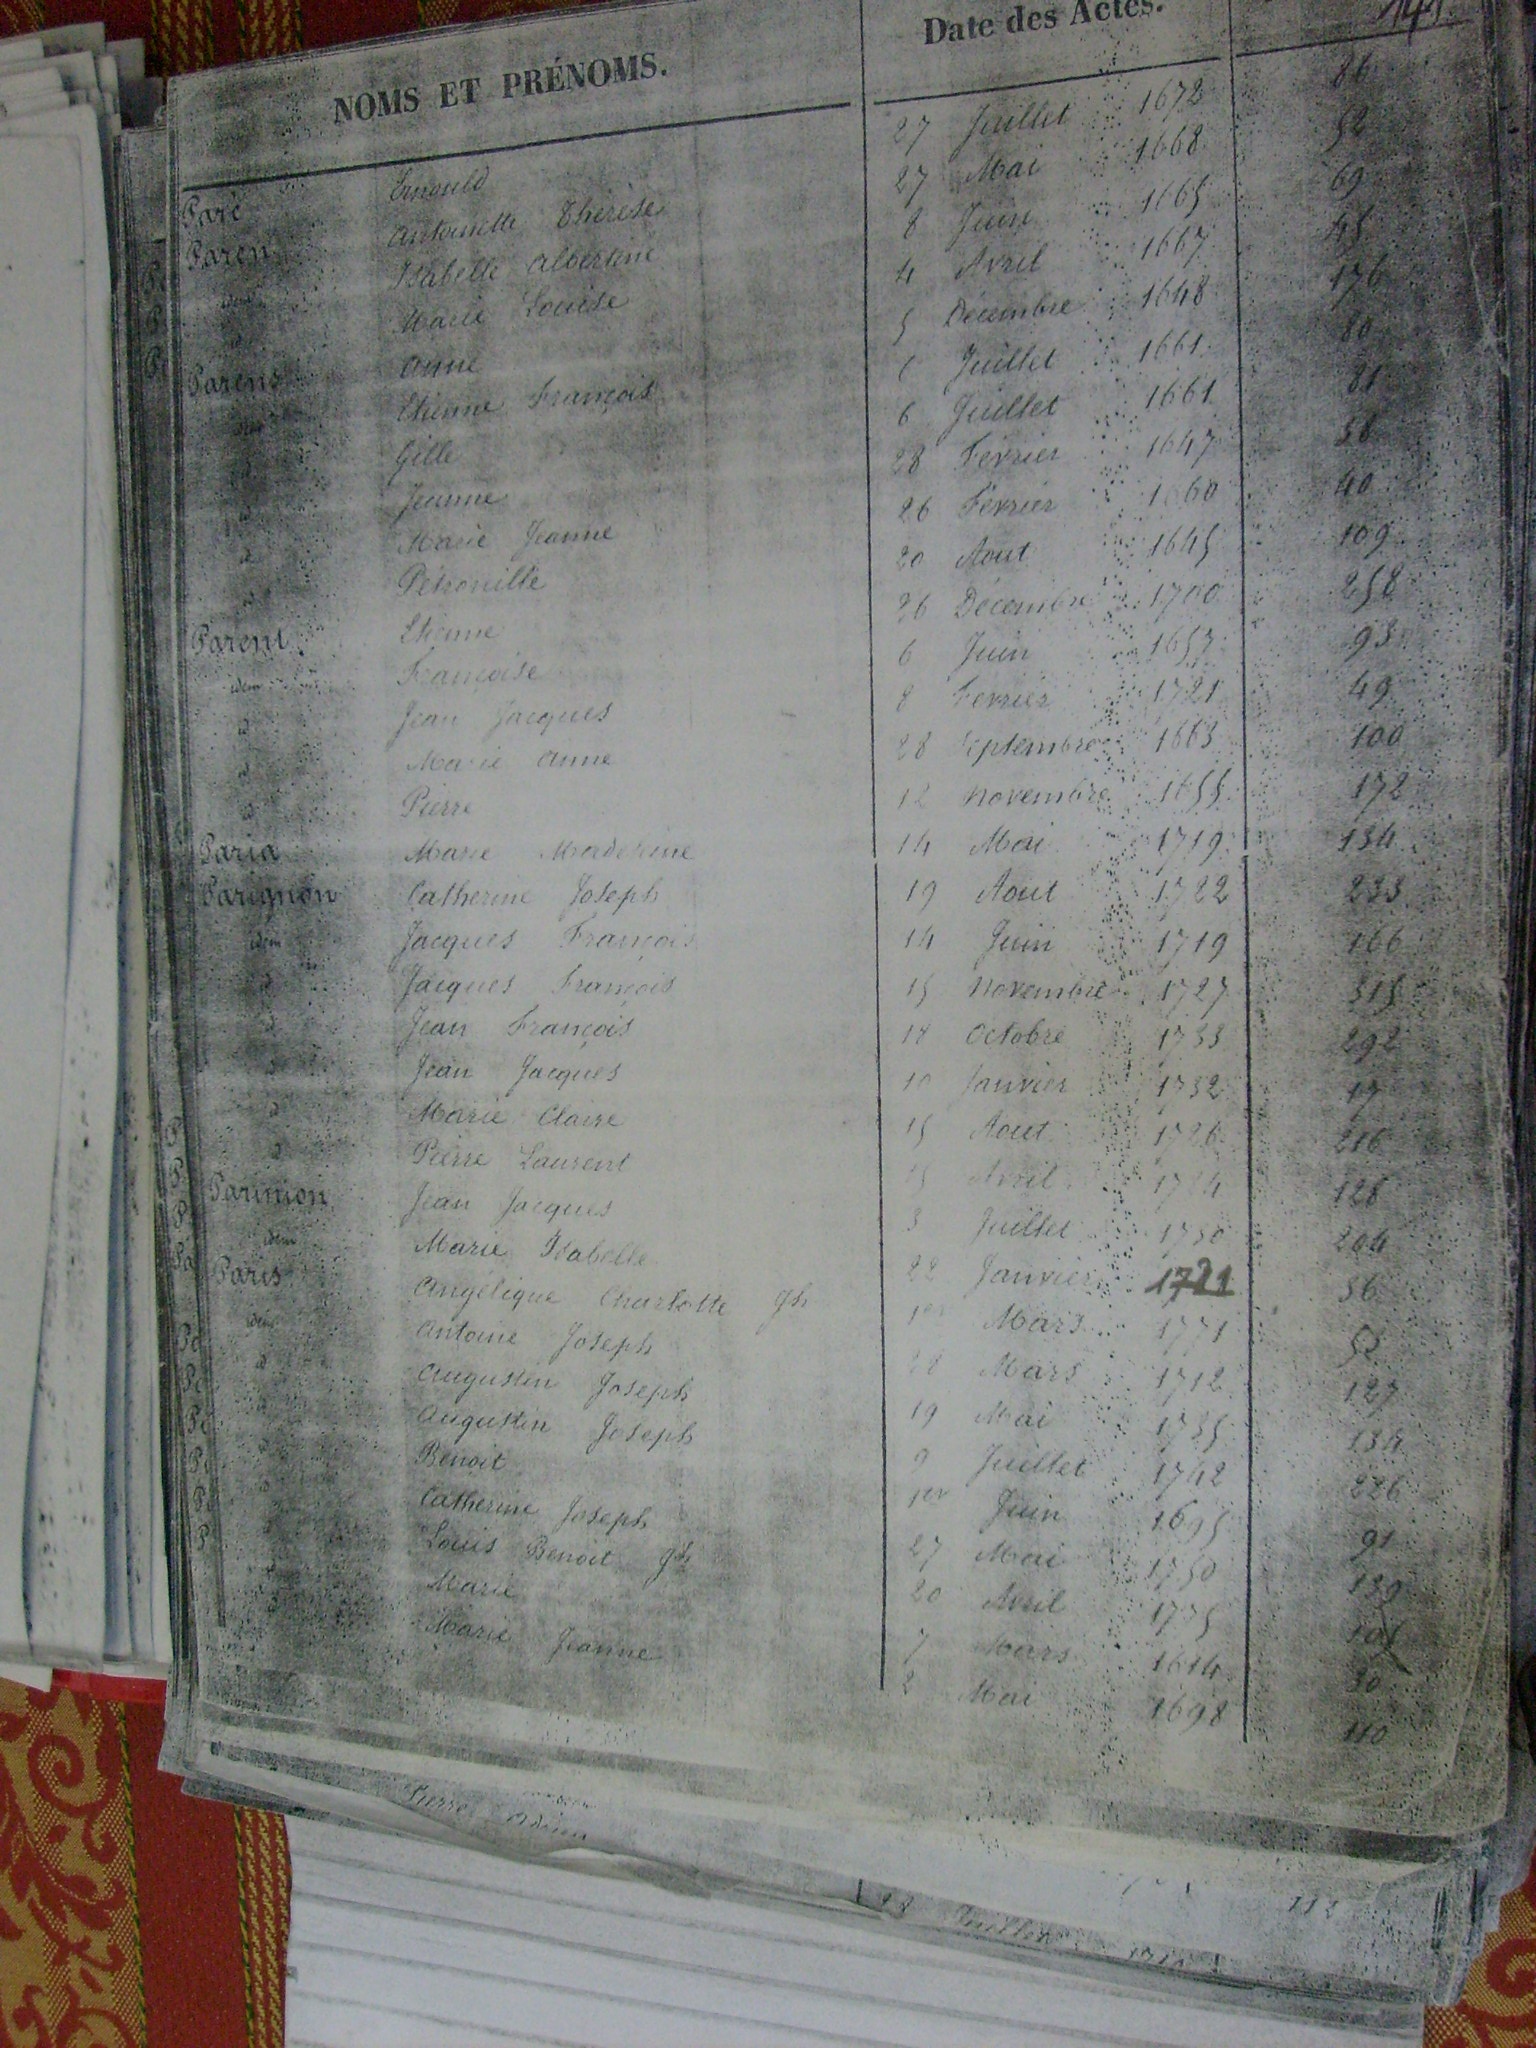 NOMS ET PRÉNOMS. Date des Actes. 141.
Paré Ernould 27 Juillet 1672 86
Paren Antoinette Thérèse 27 Mai 1668 52
idem Isabelle Albertine 8 Juin 1665 69
id Marie Louise 4 Avril 1667 45
Parens Anne 5 Décembre 1648 176
idem Etienne François 6 Juillet 1661 80
id Gille 6 Juillet 1661 81
id Jeanne 28 Février 1647 38
id Marie Jeanne 26 Février 1660 40
id Pétronille 20 Aout 1645 109
Parent Etienne 26 Décembre 1700 258
idem Françoise 6 Juin 1657 93
id Jean Jacques 8 Février 1721 49
id Marie Anne 28 Septembre 1663 100
id Pierre 12 Novembre 1655 172
Paria Marie Madeleine 14 Mai 1719 134
Parignon Catherine Joseph 19 Aout 1722 233
idem Jacques François 14 Juin 1719 166
id Jacques François 15 Novembre 1727 315
id Jean François 18 Octobre 1733 292
id Jean Jacques 10 Janvier 1732 17
id Marie Claire 15 Aout 1726 216
id Pierre Laurent 15 Avril 1724 128
Parinion Jean Jacques 3 Juillet 1730 204
idem Marie Isabelle 22 Janvier 1721 36
Paris Angélique Charlotte Jh 1er Mars 1771 53
idem Antoine Joseph 28 Mars 1712 127
id Augustin Joseph 19 Mai 1735 134
id Augustin Joseph 9 Juillet 1742 226
id Benoit 1er Juin 1695 91
id Catherine Joseph 27 Mai 1750 139
id Louis Benoit Jh 20 Avril 1775
id Marie 7 Mars 1614 30
id Marie Jeanne 2 Mai 1698 110
Pierre
28 Juillet 112